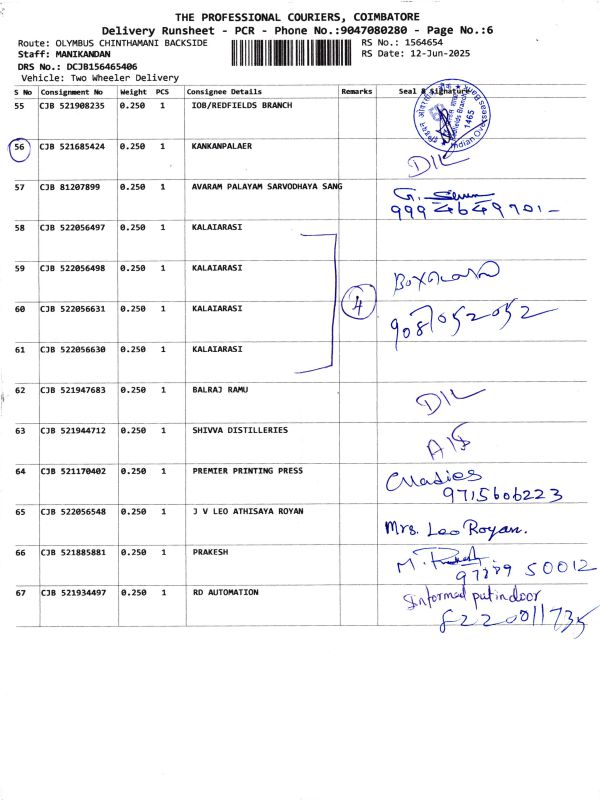 THE PROFESSIONAL COURIERS, COIMBATORE
Delivery Runsheet - PCR - Phone No.:9047080280 - Page No.:6
Route: OLYMBUS CHINTHAMANI BACKSIDE RS No.: 1564654
Staff: MANIKANDAN RS Date: 12-Jun-2025
DRS No.: DCJB156465406
Vehicle: Two Wheeler Delivery
S No Consignment No Weight PCS Consignee Details Remarks Seal & Signature
55 CJB 521908235 0.250 1 IOB/REDFIELDS BRANCH
1465
Indian Overseas Bank
56 CJB 521685424 0.250 1 KANKANPALAER D/L
57 CJB 81207899 0.250 1 AVARAM PALAYAM SARVODHAYA SANG
9994649701-
58 CJB 522056497 0.250 1 KALAIARASI
59 CJB 522056498 0.250 1 KALAIARASI
4
60 CJB 522056631 0.250 1 KALAIARASI 9087052052
61 CJB 522056630 0.250 1 KALAIARASI
62 CJB 521947683 0.250 1 BALRAJ RAMU D/L
63 CJB 521944712 0.250 1 SHIVVA DISTILLERIES
64 CJB 521170402 0.250 1 PREMIER PRINTING PRESS
9715606223
65 CJB 522056548 0.250 1 J V LEO ATHISAYA ROYAN Mrs. Leo Royan.
66 CJB 521885881 0.250 1 PRAKESH
50012
67 CJB 521934497 0.250 1 RD AUTOMATION Informed put indoor
8220011735